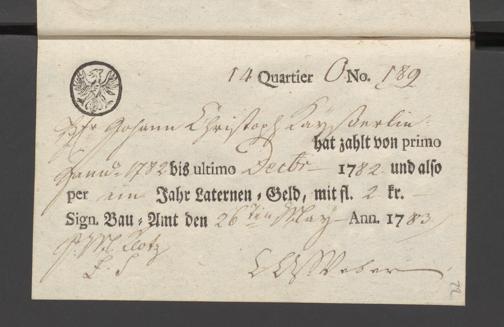 14 Quartier O No. 189
Hr Johann Christoph Kayßerlin
hat zahlt von primo
Janu: 1782 bis ultimo Decbr 1782 und also
per ein Jahr Laternen-Geld, mit fl. 2 kr. –
Sign. Bau-Amt den 26 Tn May – Ann. 1783
p. M. Klotz
L. S.
Weber
72